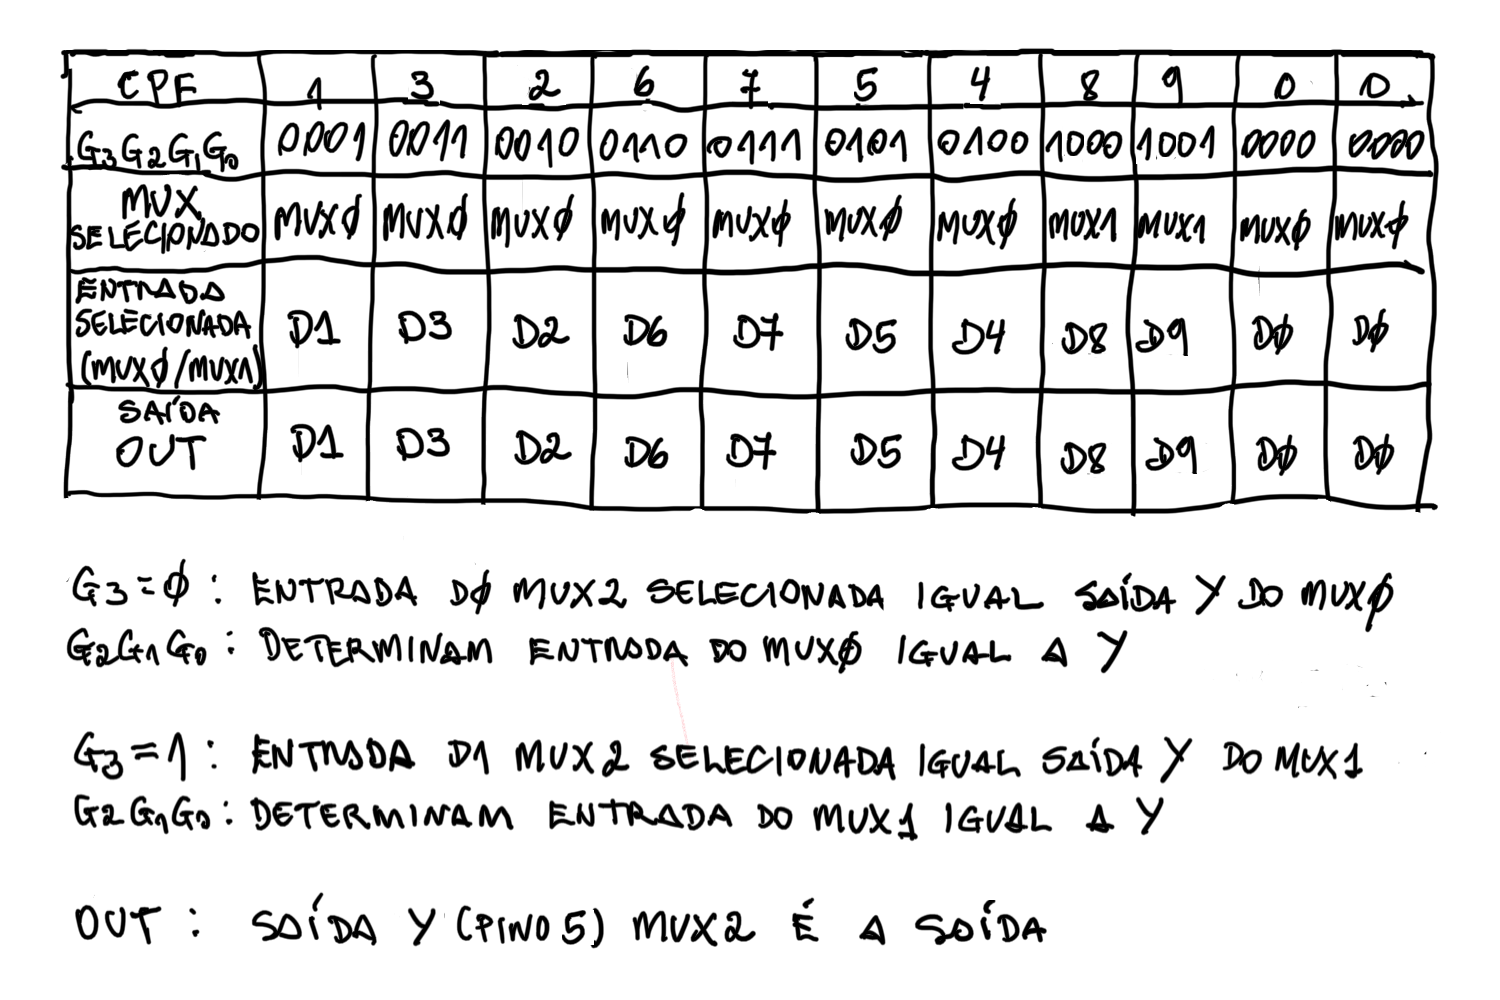 CPF 1 3 2 6 7 5 4 8 9 0 0
G3G2G1G0 0001 0011 0010 0110 0111 0101 0100 1000 1001 0000 0000
MUX
SELECIONADO MUXØ MUXØ MUXØ MUXØ MUXØ MUXØ MUXØ MUX1 MUX1 MUXØ MUXØ
ENTRADA
SELECIONADA D1 D3 D2 D6 D7 D5 D4 D8 D9 DØ DØ
(MUXØ/MUX1)
SAÍDA
OUT D1 D3 D2 D6 D7 D5 D4 D8 D9 DØ DØ
G3=Ø: ENTRADA DØ MUX2 SELECIONADA IGUAL SAÍDA Y DO MUXØ
G2G1G0: DETERMINAM ENTRADA DO MUXØ IGUAL A Y
G3=1: ENTRADA D1 MUX2 SELECIONADA IGUAL SAÍDA Y DO MUX1
G2G1G0: DETERMINAM ENTRADA DO MUX1 IGUAL A Y
OUT: SAÍDA Y (PINO 5) MUX2 É A SAÍDA